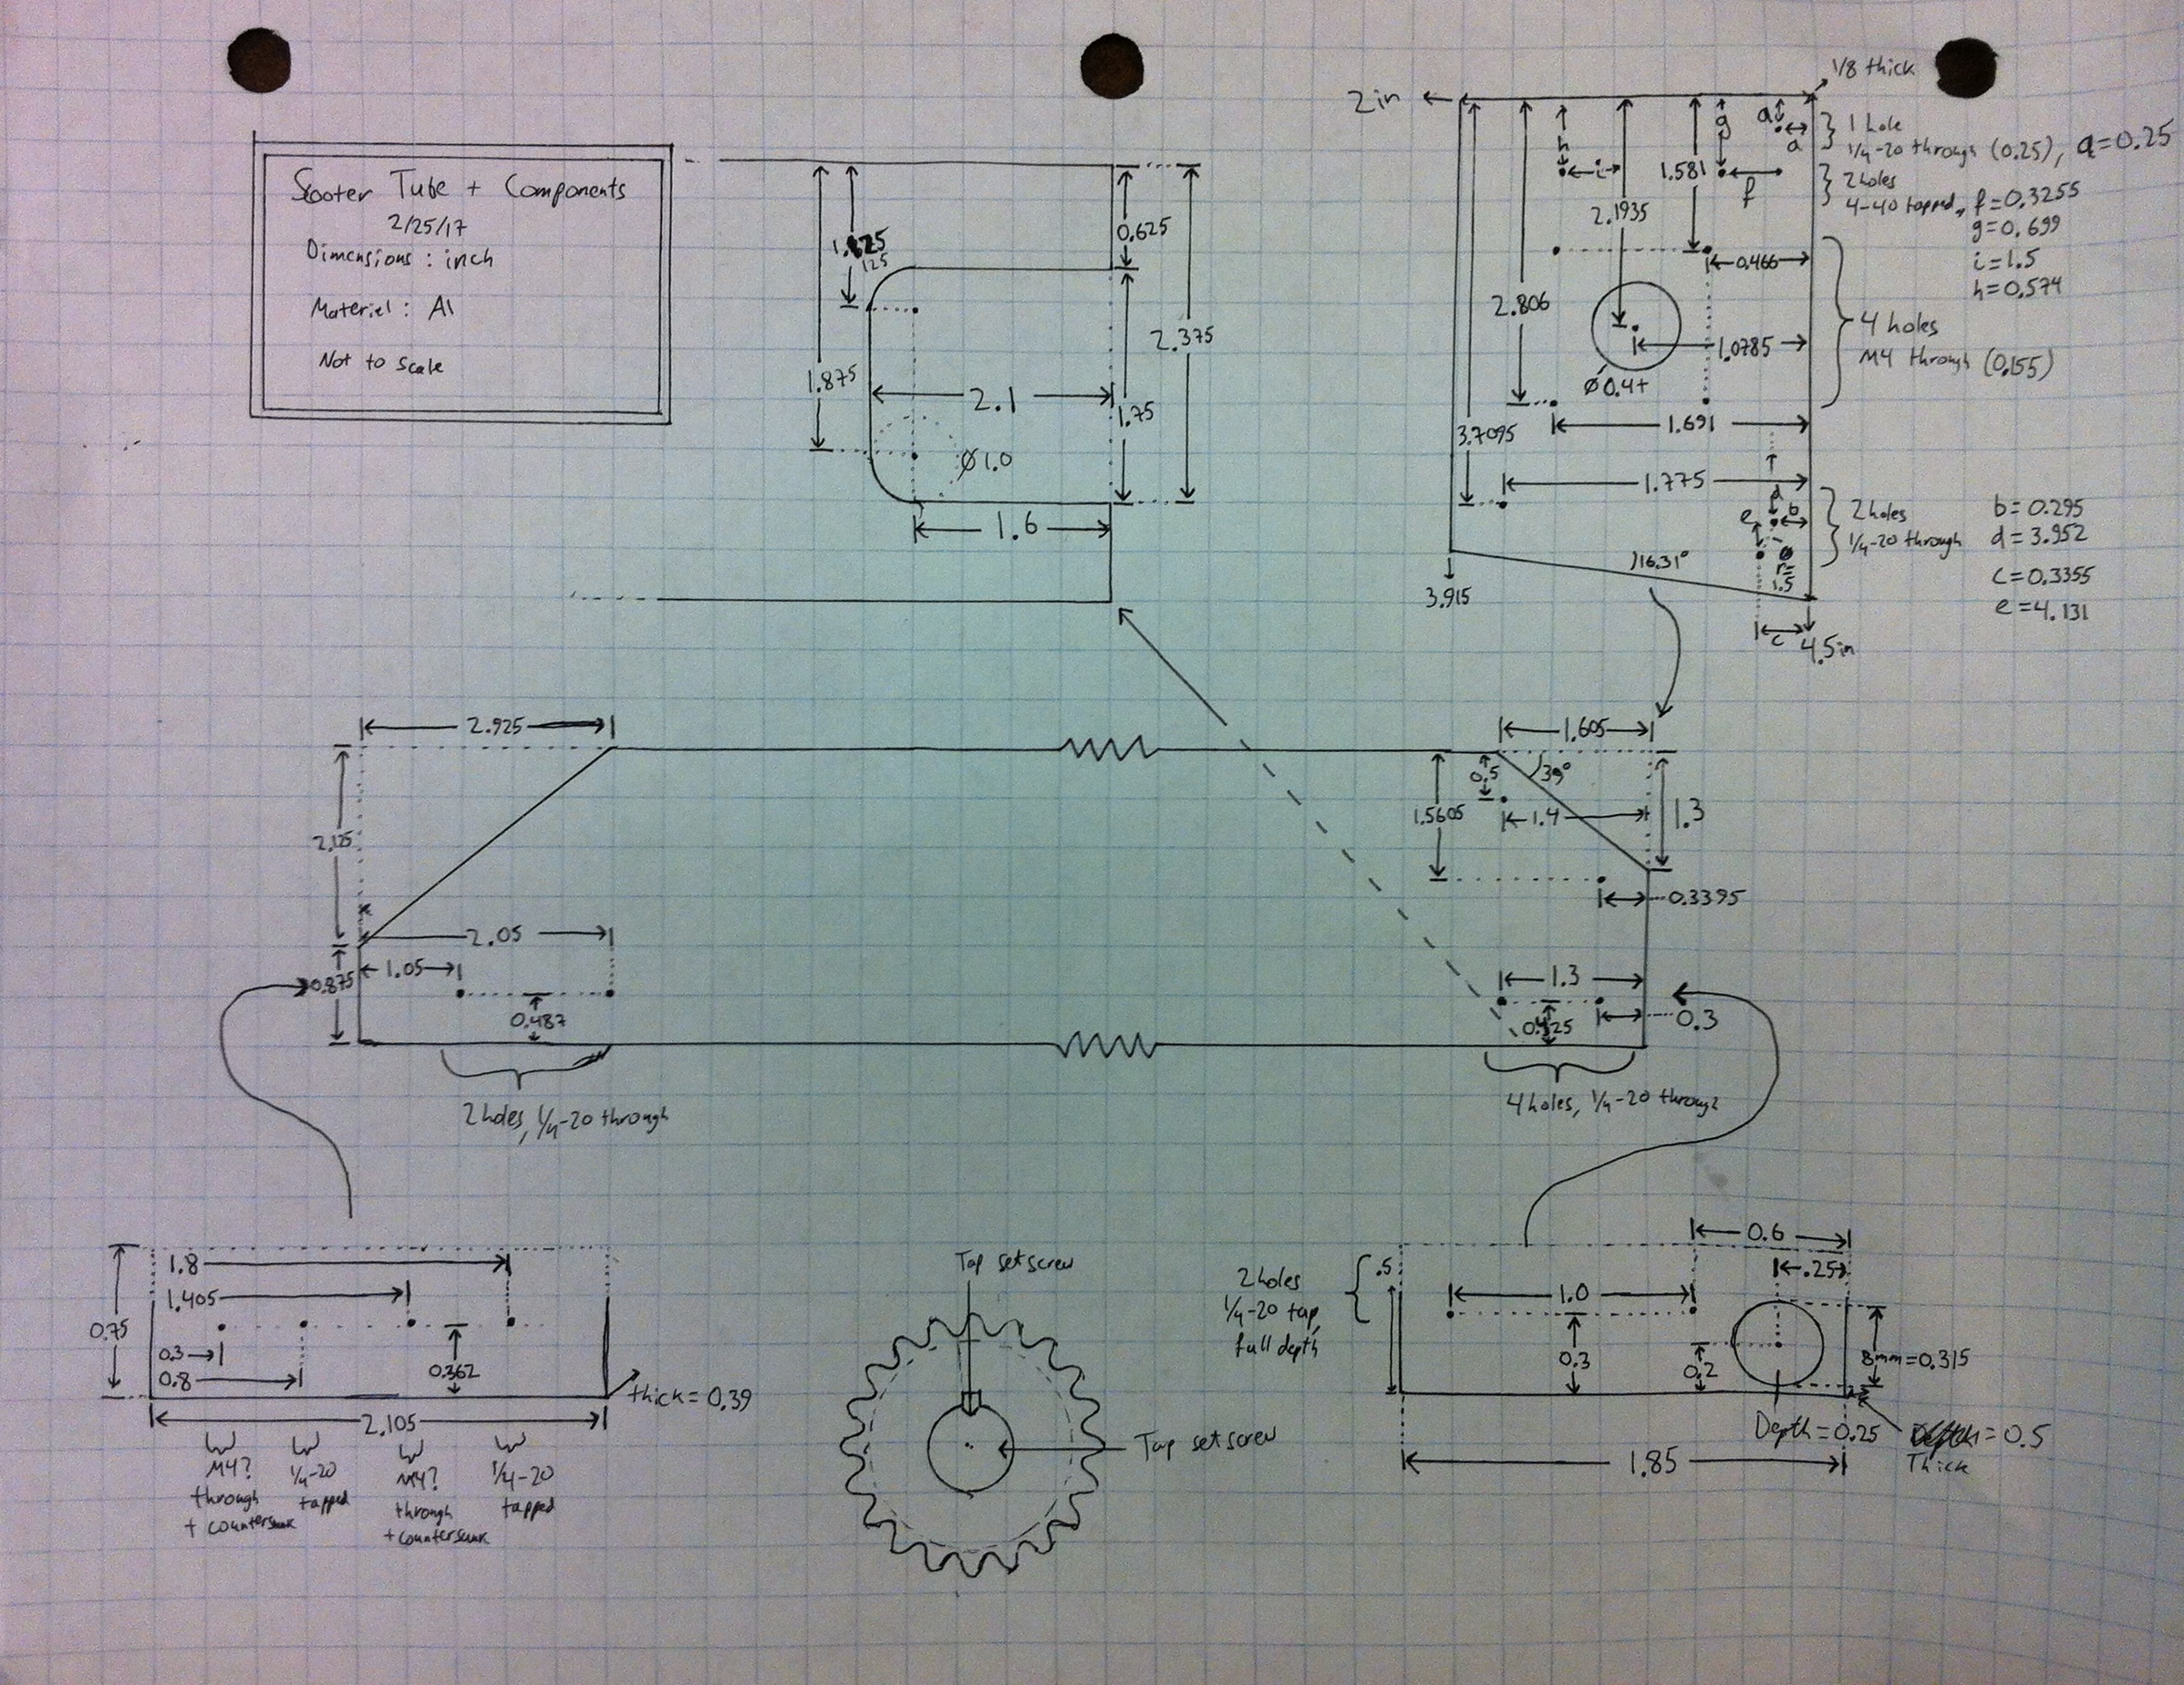 Scooter Tube + Components
2/25/17
Dimensions : inch
Materiel : Al
Not to scale
125
1.875
2.1
Ø1.0
1.6
0.625
1.75
2.375
2in
1/8 thick
h
i
2.1935
1.581
g
f
a
a
1 hole
1/4-20 through (0.25), a=0.25
2 holes
4-40 tapped, f=0.3255
g=0.699
i=1.5
h=0.574
0.466
2.806
1.0785
Ø0.4+
4 holes
M4 through (0.155)
1.691
3.7095
1.775
d
b
e
r=
1.5
2 holes
1/4-20 through
b=0.295
d=3.952
c=0.3355
e=4.131
16.31°
3.915
c
4.5in
2.925
2.125
2.05
1.05
0.875
0.487
2 holes, 1/4-20 through
1.605
0.5
39°
1.5605
1.4
1.3
0.3395
1.3
0.3
4 holes, 1/4-20 through
1.8
1.405
0.75
0.3
0.8
0.362
thick = 0.39
2.105
M4?
through
+ countersunk
1/4-20
tapped
M4?
through
+ countersunk
1/4-20
tapped
Tap setscrew
Tap setscrew
2 holes
1/4-20 tap,
full depth
.5
0.6
.25
1.0
0.3
0.2
8mm=0.315
Depth=0.25
=0.5
Thick
1.85